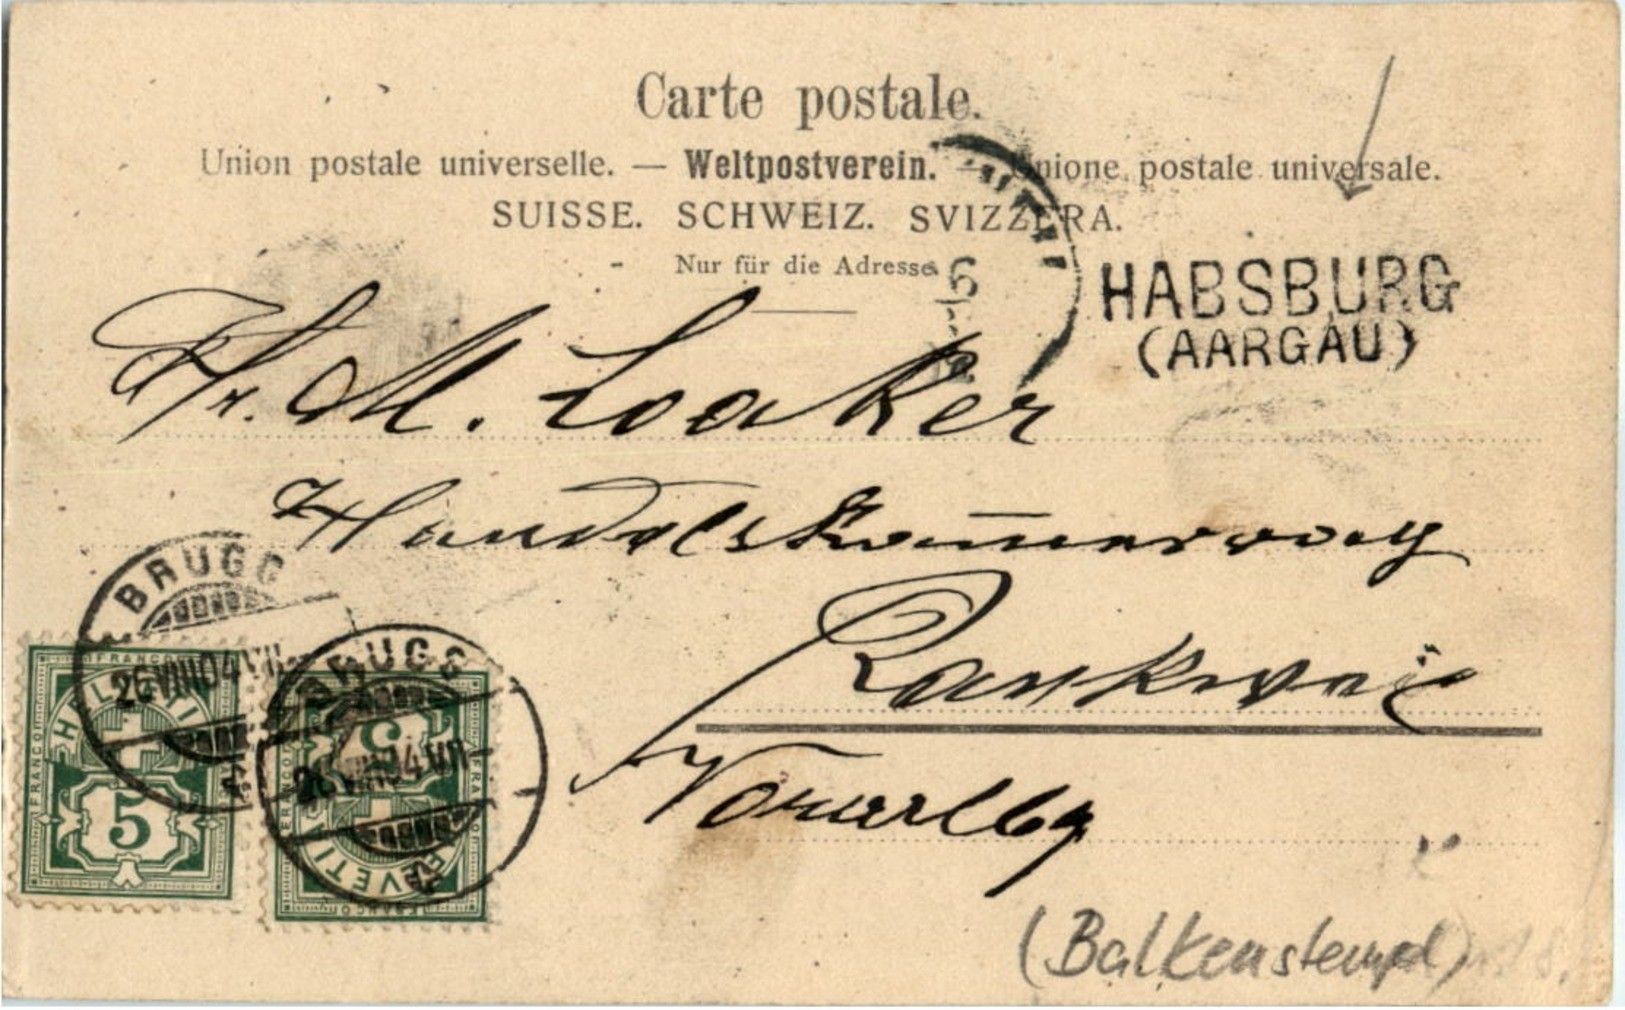 Carte postale.
Union postale universelle. — Weltpostverein. — Unione postale universale.
SUISSE. SCHWEIZ. SVIZZERA.
Nur für die Adresse.
HABSBURG
(AARGAU)
Fr. M. Loaker
Rankweil
Vorarlbg
BRUGG
26.VIII.04
BRUGG
26.VIII.04
FRANCO
HELVETIA
5
FRANCO
HELVETIA
5
(Balkenstempel)